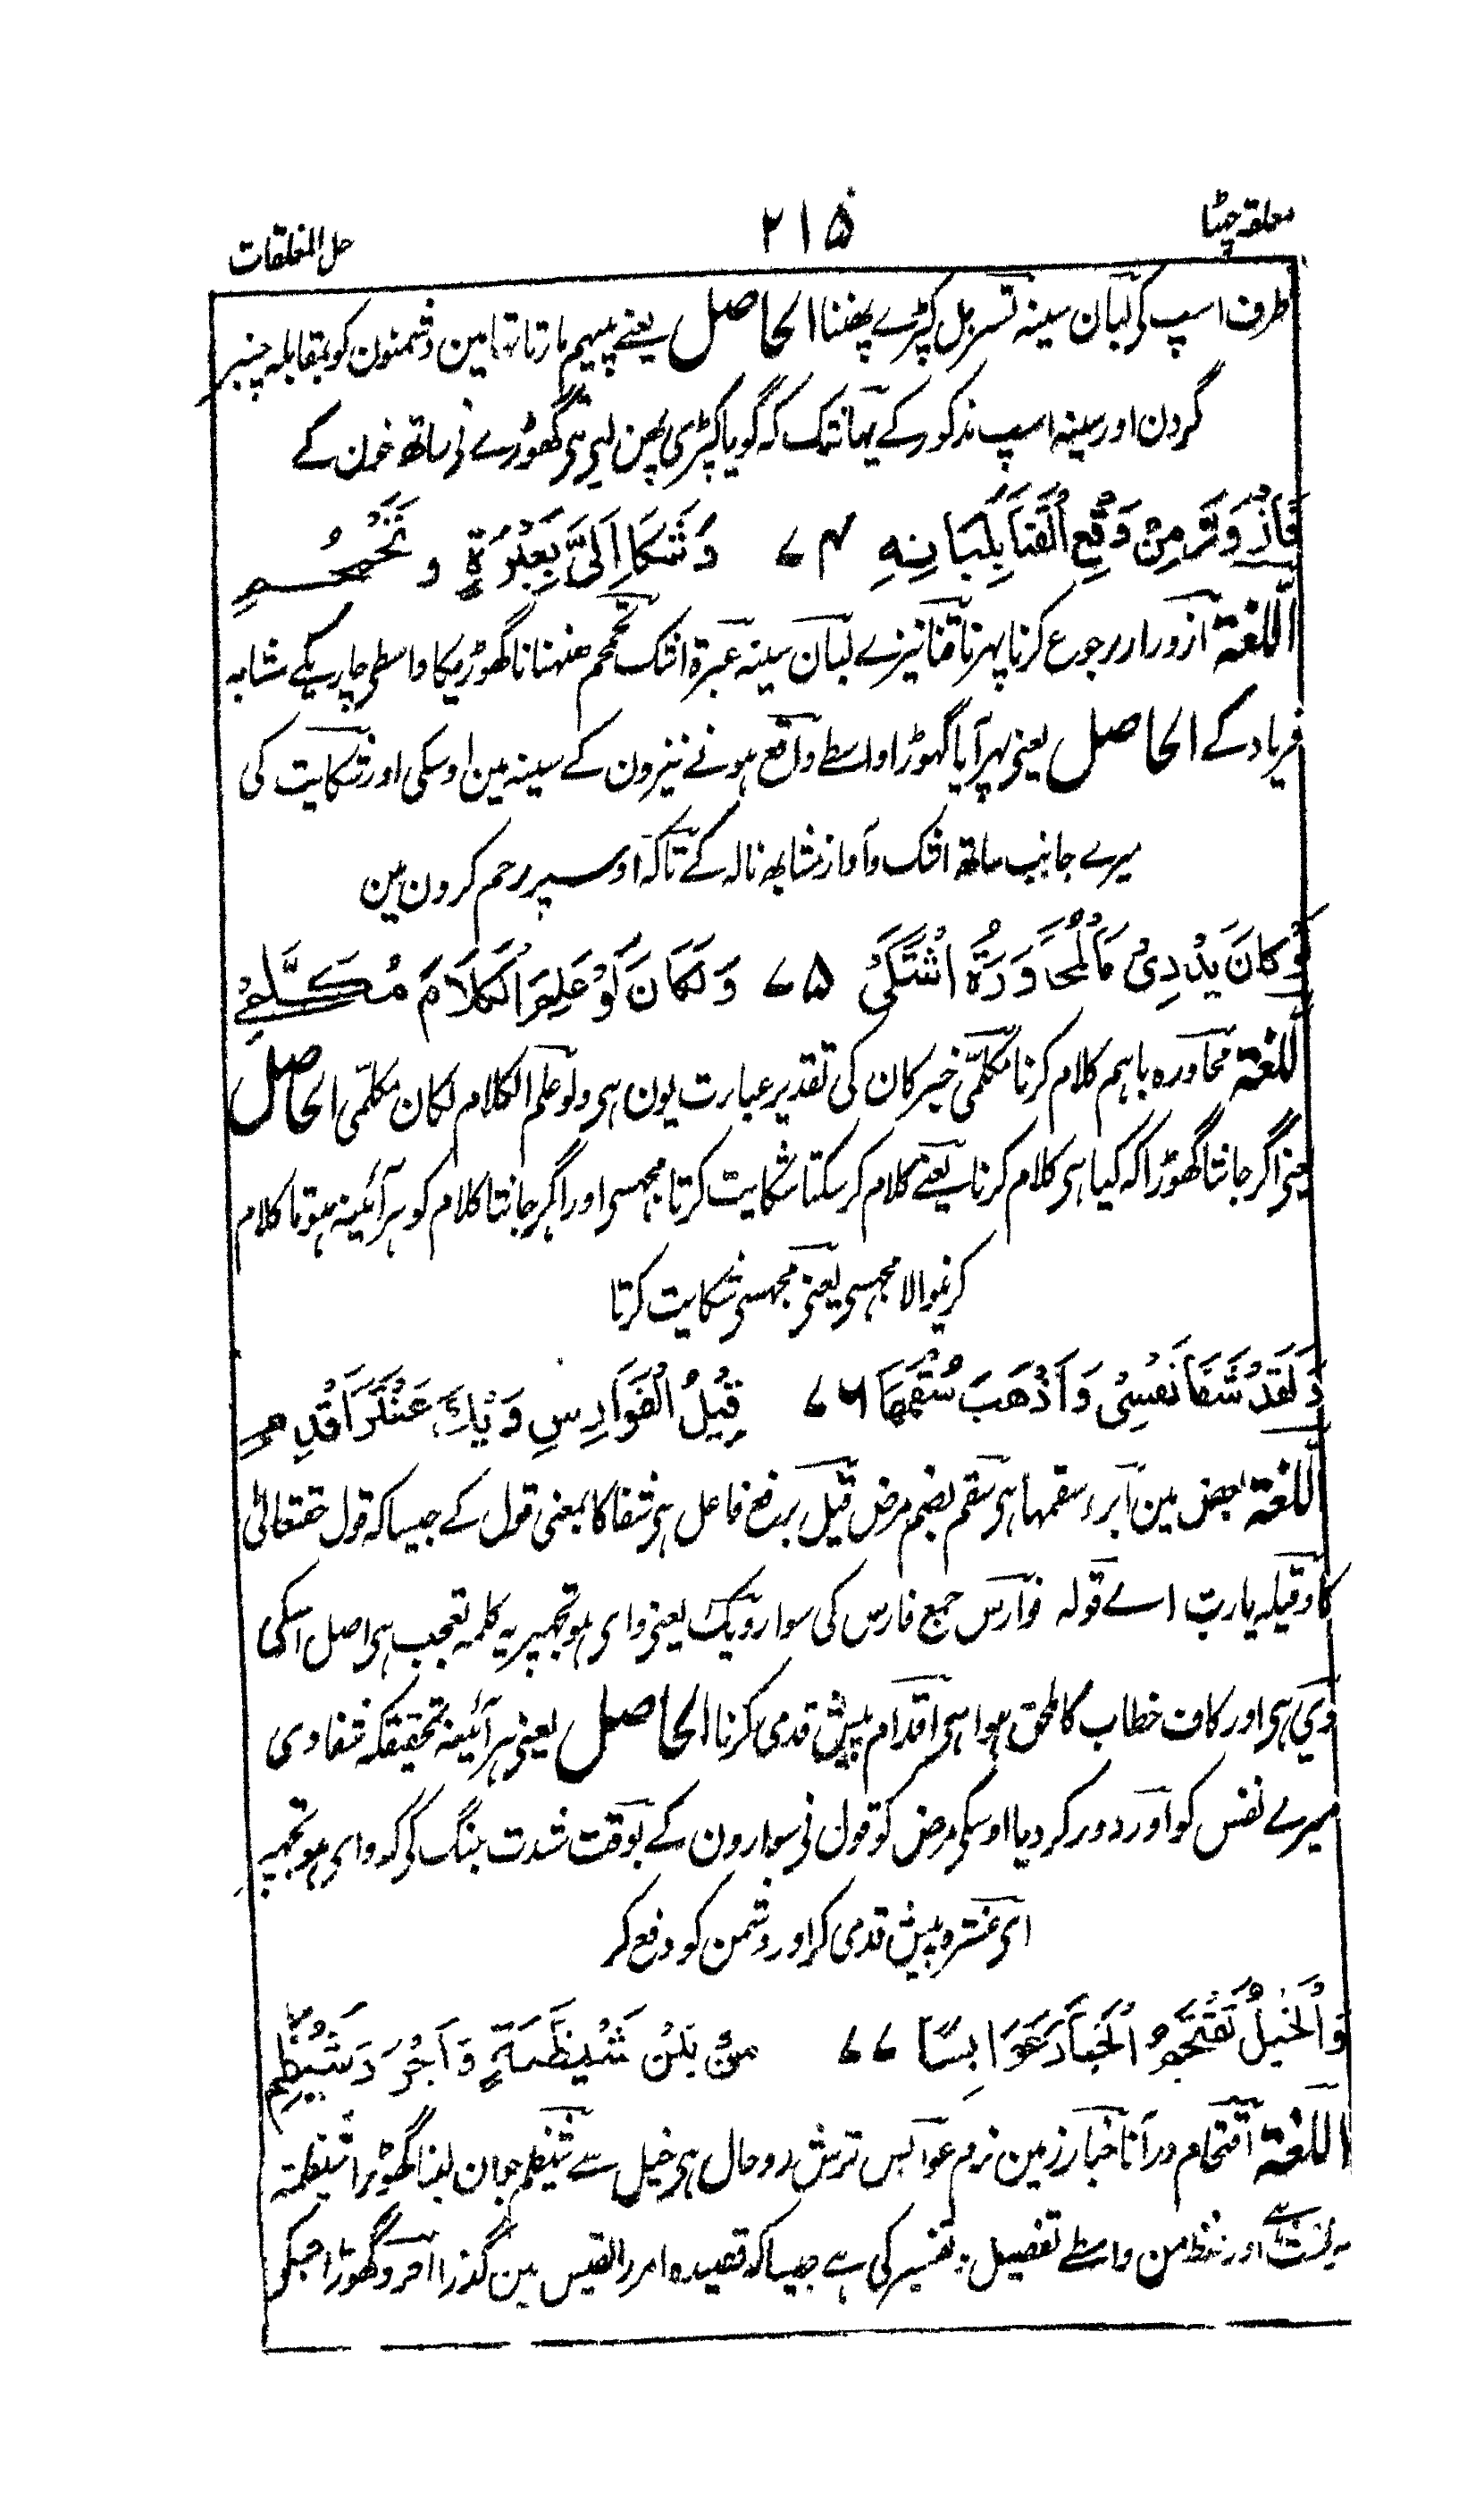 معلقہ چٹا ۲۱۵ حل المغلقات
طرف اسپ کی لبان سینہ تسربل کپڑے پھننا الحاصل یعنے پیہم مارتا تہا مین دشمنون کو بمقابلہ چنبر
گردن اور سینہ اسپ مذکور کے یہانتک کہ گویا کپڑی پھن لیی ہی گھوڑے نی ساتھ خون کے
فَازْوَرَّ مِنْ وَقْعِ الْقَنَا بِلَبَانِهِ ۷۴ وَشَكَا اِلَيَّ بِعَبْرَةٍ وَ تَحَمْحُمِ
اللغۃ ازورار رجوع کرنا پہرنا قنا نیزے لبان سینہ عبرۃ اشک تحمحم ہنہنانا گھوڑیکا واسطی چاریکے مشابہ
فریاد کے الحاصل یعنی پہر آیا گہوڑا واسطے واقع ہونے نیزون کے سینہ مین اوسکی اور شکایت کی
میرے جانب ساتھ اشک وآواز مشابھ نالہ کے تاکہ اوسپر رحم کرون مین
لَوْ كَانَ يَدْرِيْ مَا لْمُحَاوَرَةُ اشْتَكٰى ۷۵ وَلَكَانَ لَوْ عَلِمَ الْكَلَامَ مُكَلِّمِيْ
اللغۃ محاورہ باہم کلام کرنا مکلمی خبر کان کی تقدیر عبارت یون ہی ولو علم الکلام لکان مکلمی الحاصل
یعنی اگر جانتا گھوڑا کہ کیا ہی کلام کرنا یعنے کلام کر سکتا شکایت کرتا مجہسی اور اگر جانتا کلام کو ہر آئینہ ہوتا کلام
کرنیوالا مجہسی یعنی مجہسی شکایت کرتا
وَلَقَدْ شَفَا نَفْسِيْ وَاَذْهَبَ سُقْمَهَا ۷۶ قِيْلُ الْفَوَارِسِ وَيْكَ عَنْتَرَ اَقْدِمِ
اللغۃ بعض مین ابرء سقمہا ہی سقم بضم مرض قیل برفع فاعل ہی شفا کا بمعنی قول کے جیسا کہ قول حقتعالٰی
کا وقیلہ یارب اے قولہ فوارس جمع فارس کی سوار ویک یعنی وای ہو تجہپر یہ کلمہ تعجب ہی اصل اسکی
وی ہی اور کاف خطاب کا ملحق ہوا ہی اقدام پیش قدمی کرنا الحاصل یعنی ہر آئینہ تحقیقکہ شفا دی
میرے نفس کو اور دور کر دیا اوسکی مرض کو قول نی سوارون کے بوقت شدت جنگ کی کہ وای ہو تجہپر
ای عنترہ پیش قدمی کر اور دشمن کو دفع کر
وَالْخَيْلُ تَقْتَحِمُ الْخَبَارَ عَوَابِسًا ۷۷ مِنْ بَيْنِ شَيْظَمَةٍ وَاَجْرَدَ شَيْظَمِ
اللغۃ اقتحام درآنا خبار زمین نرم عوابس ترش رو حال ہی خیل سے شیظم جوان لنبا گھوڑا شیظمۃ
اور لفظ من واسطے تفصیل و تفسیر کی ہے جیسا کہ قصیدہ امرء القیس مین گذرا اجرد گھوڑا جسکی